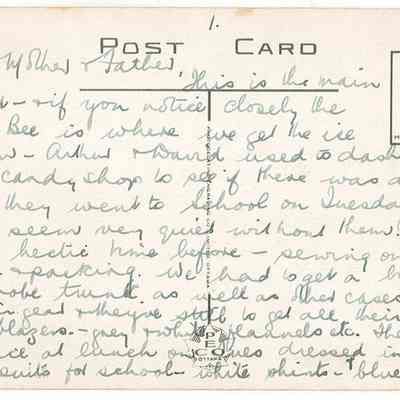 1.
POST CARD
Mother & Father,
This is the main
- & if you notice closely the
Bee is where we get the ice
- Arthur & David used to dash
candy shop to see if there was a
they went to school on Tuesda
seem very quiet without them!
hectic time before - sewing on
& packing. We had to get a b
robe trunk as well as other cases
gear & they've still to get all their
blazers. - grey & white flannels etc. The
ice at lunch on dressed in
suits for school - white shirts - blue
PECO
OTTAWA